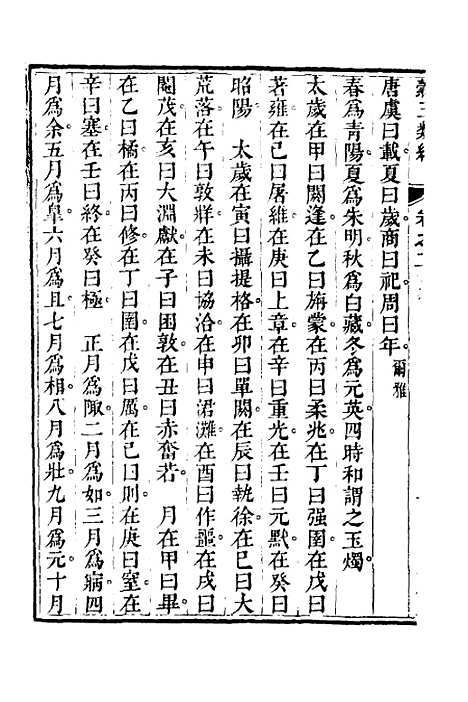 唐虞曰載。夏曰歲。商曰祀。周曰年。爾雅
春爲青陽。夏爲朱明。秋爲白藏。冬爲元英。四時和謂之玉燭。
太歲在甲曰閼逢。在乙曰旃蒙。在丙曰柔兆。在丁曰强圉。在戊曰
著雍。在己曰屠維。在庚曰上章。在辛曰重光。在壬曰元默。在癸曰
昭陽　太歲在寅曰攝提格。在卯曰單閼。在辰曰執徐。在巳曰大
荒落。在午曰敦牂。在未曰協洽。在申曰涒灘。在酉曰作噩。在戌曰
閹茂。在亥曰大淵獻。在子曰困敦。在丑曰赤奮若　月在甲曰畢。
在乙曰橘。在丙曰修。在丁曰圉。在戊曰厲。在己曰則。在庚曰窒。在
辛曰塞。在壬曰終。在癸曰極　正月爲陬。二月爲如。三月爲寎。四
月爲余。五月爲皐。六月爲且。七月爲相。八月爲壯。九月爲元。十月